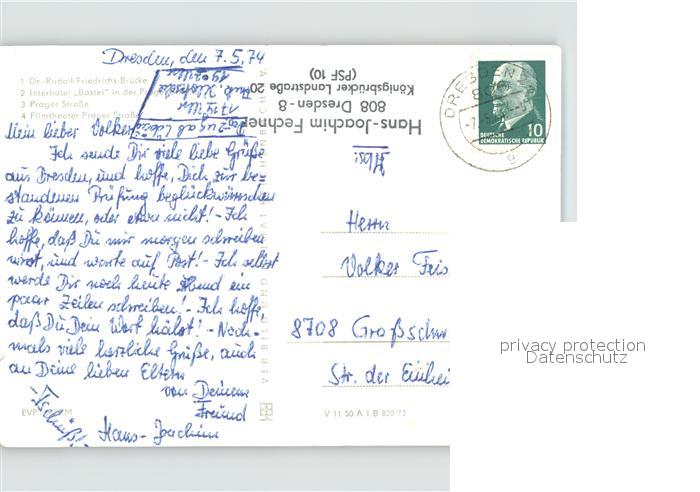 Dresden, den 7.5.74
1 Dr.-Rudolf-Friedrichs-Brücke
2 Interhotel „Bastei" in der Prager
3 Prager Straße
4 Filmtheater Prager Straße
19 Uhr
17 Uhr
Mein lieber Volker!
Ich sende Dir viele liebe Grüße
aus Dresden, und hoffe, Dich zur be-
standenen Prüfung beglückwünschen
zu können, oder etwa nicht! - Ich
hoffe, daß Du mir morgen schreiben
wirst, und warte auf Post! - Ich selbst
werde Dir noch heute Abend ein
paar Zeilen schreiben! - Ich hoffe,
daß Du Dein Wort hälst! - Noch-
mals viele herzliche Grüße, auch
an Deine lieben Eltern
von Deinem
Freund
Hans-Joachim
Tschüß!
EVP M
VERLAG BILD UND HEIMAT REICHENBACH I. V.
Hans-Joachim Fechner
808 Dresden -8-
Königsbrücker Landstraße 20
(PSF 10)
Abs:
DRESDEN
-7.5.74
DEUTSCHE
DEMOKRATISCHE REPUBLIK
10
Herrn
Volker Feis
8708 Großschw
Str. der Einhei
V 11 50 A 1 B 820/72
privacy protection
Datenschutz